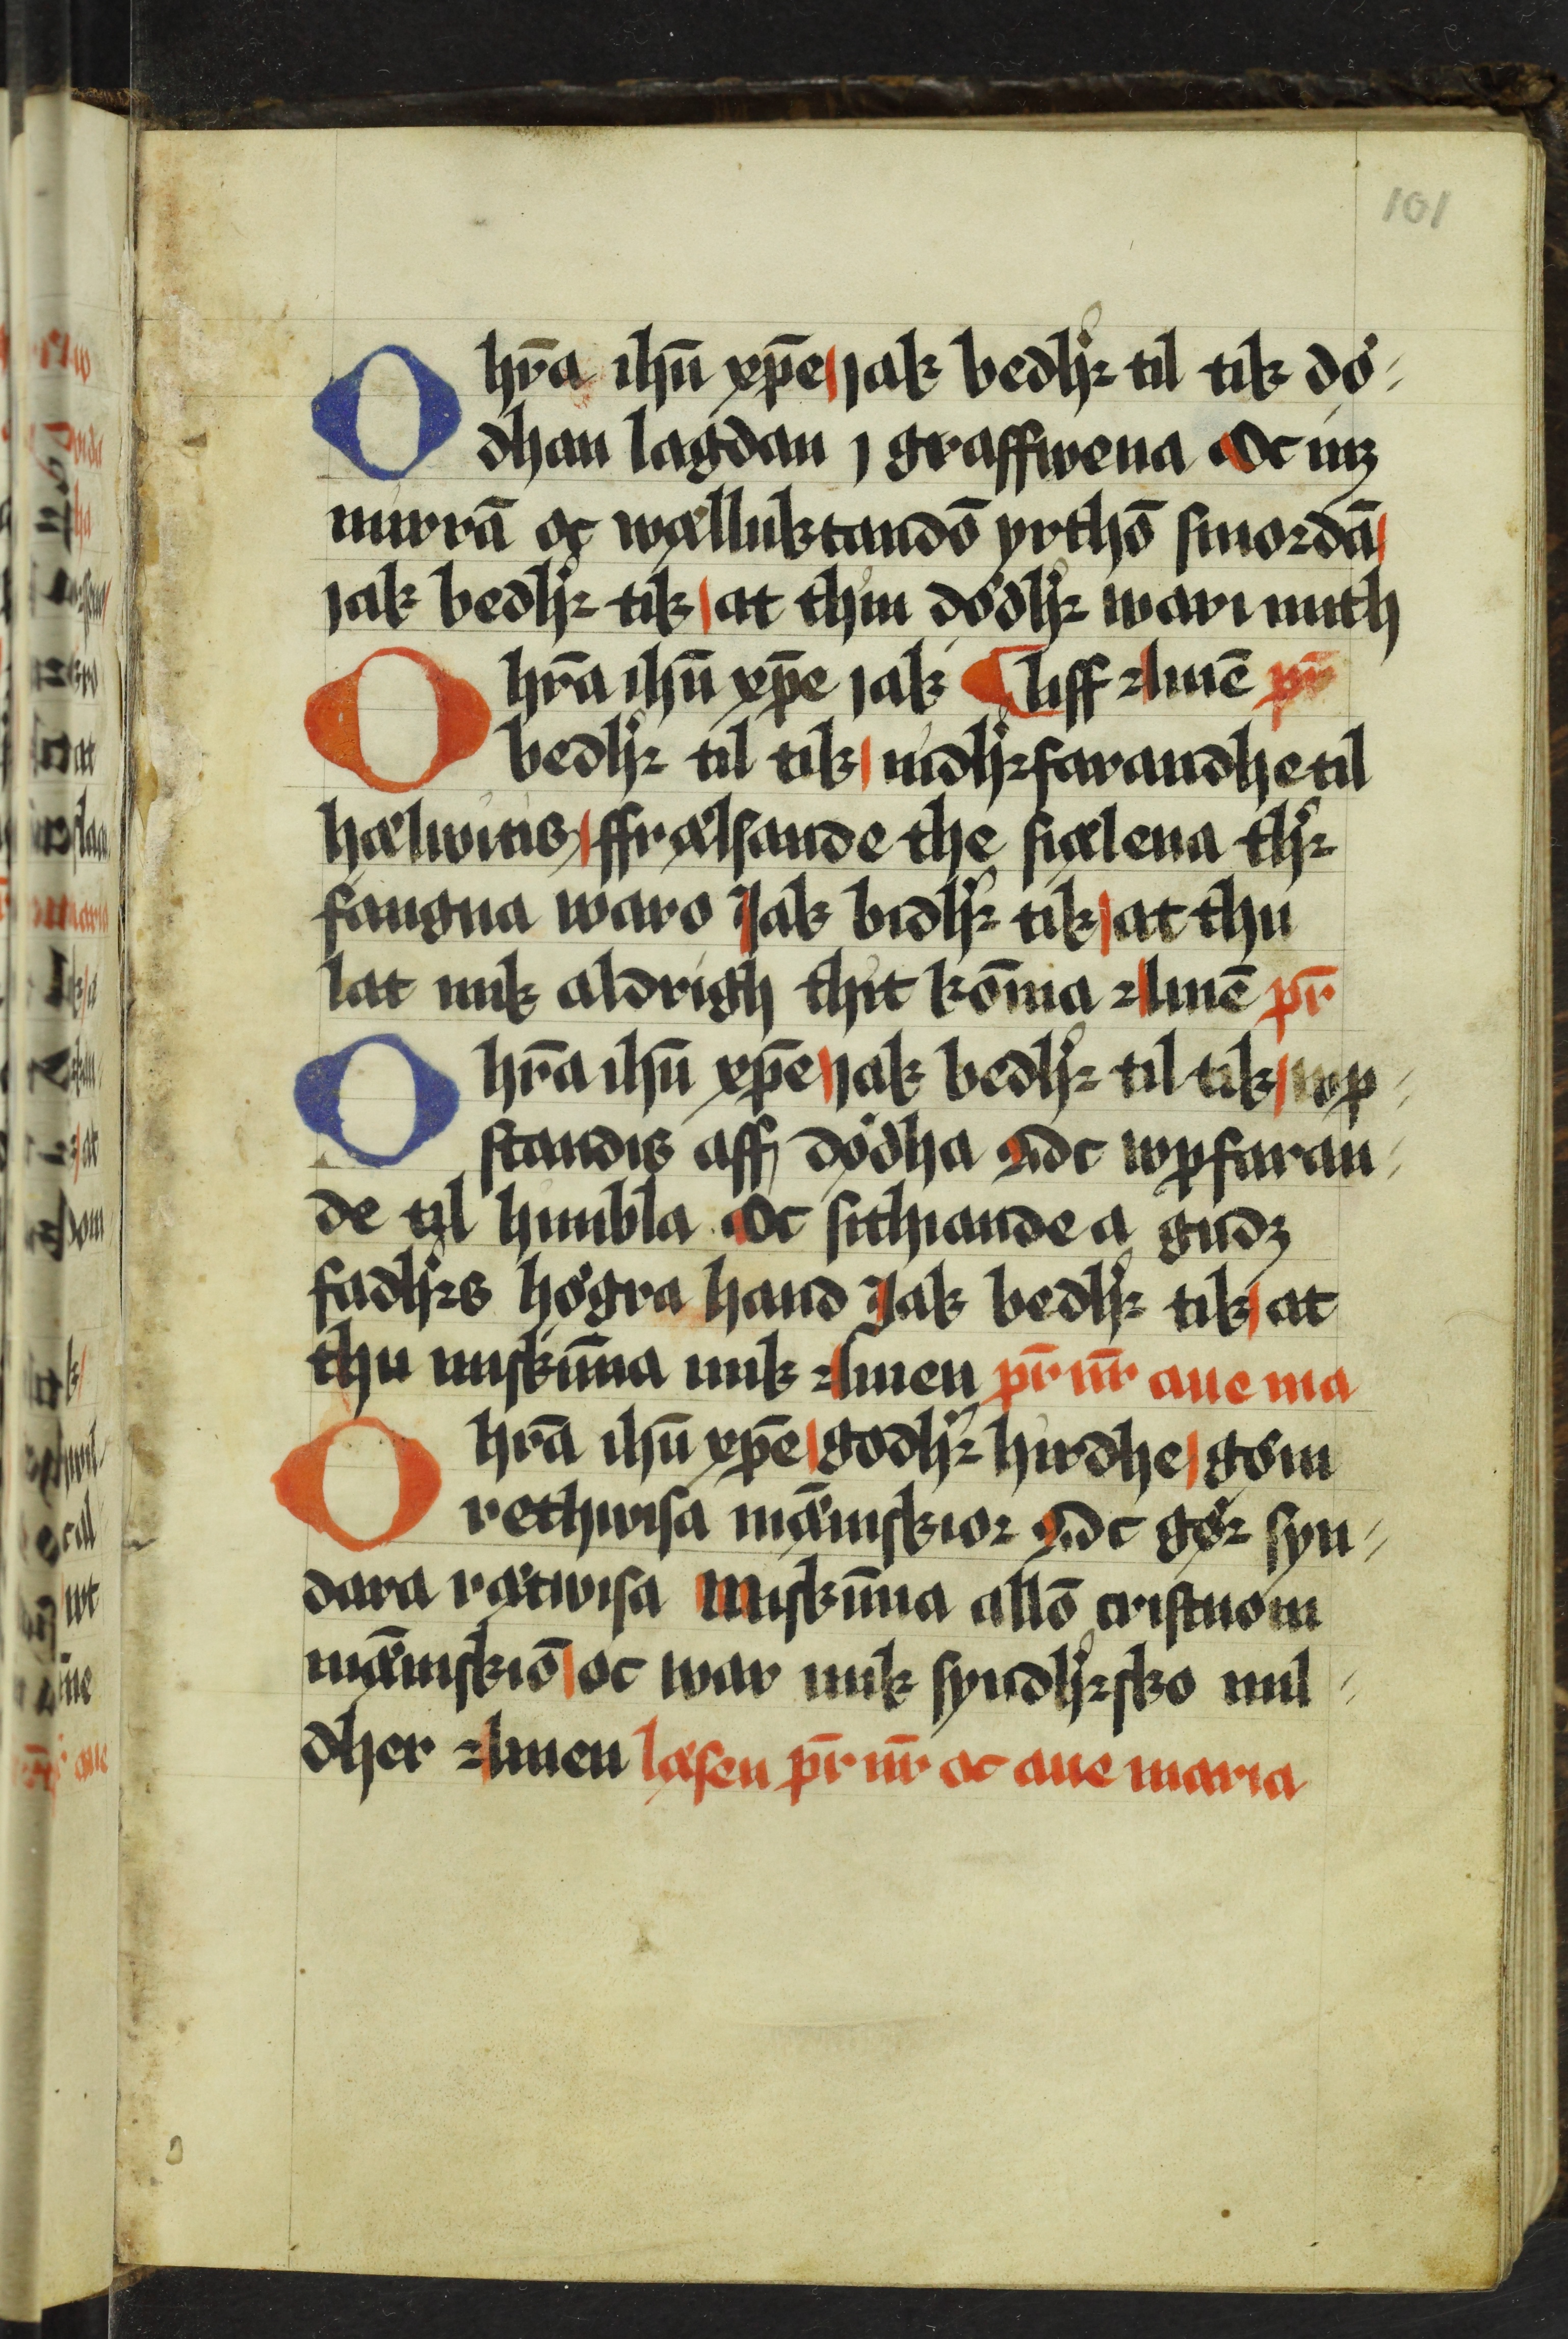 101
O hr̄a ihū xp̄e jak bedhꝛ til tik dö-
dhan lagdan j graffwena Oc mꝫ
mirrā oc wælluktandō yrthō smordā
jak bedhꝛ tik at thin dödhꝛ wari mith
liff Amē pr̄
O hr̄a ihū xp̄e jak
bedhꝛ til tik nidhꝛfarandhe til
hælwitis ffrælsande the siælena thꝛ
fangna waro Jak bidhꝛ tik at thu
lat mik aldrigh thit kōma Amē pr̄
O hr̄a ihū xp̄e jak bedhꝛ til tik wp-
standis aff dödha Oc wpfaran-
de til himbla Oc sithiande a gudꝫ
fadhꝛs högra hand Jak bedhꝛ tik at
thu miskūna mik Amen pr̄ nr̄ aue ma
O hr̄a ihū xp̄e godhꝛ hirdhe göm
rethwisa mæ̅niskior Oc gör syn-
dara rætwisa Miskūna allō cristnom
mæ̅niskiō oc war mik syndhꝛsko mil-
dher Amen læsen pr̄ nr̄ oc aue maria